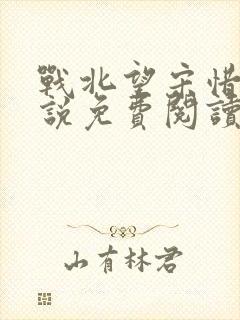 戰北望宋惜
說免費閱讀
山有林君